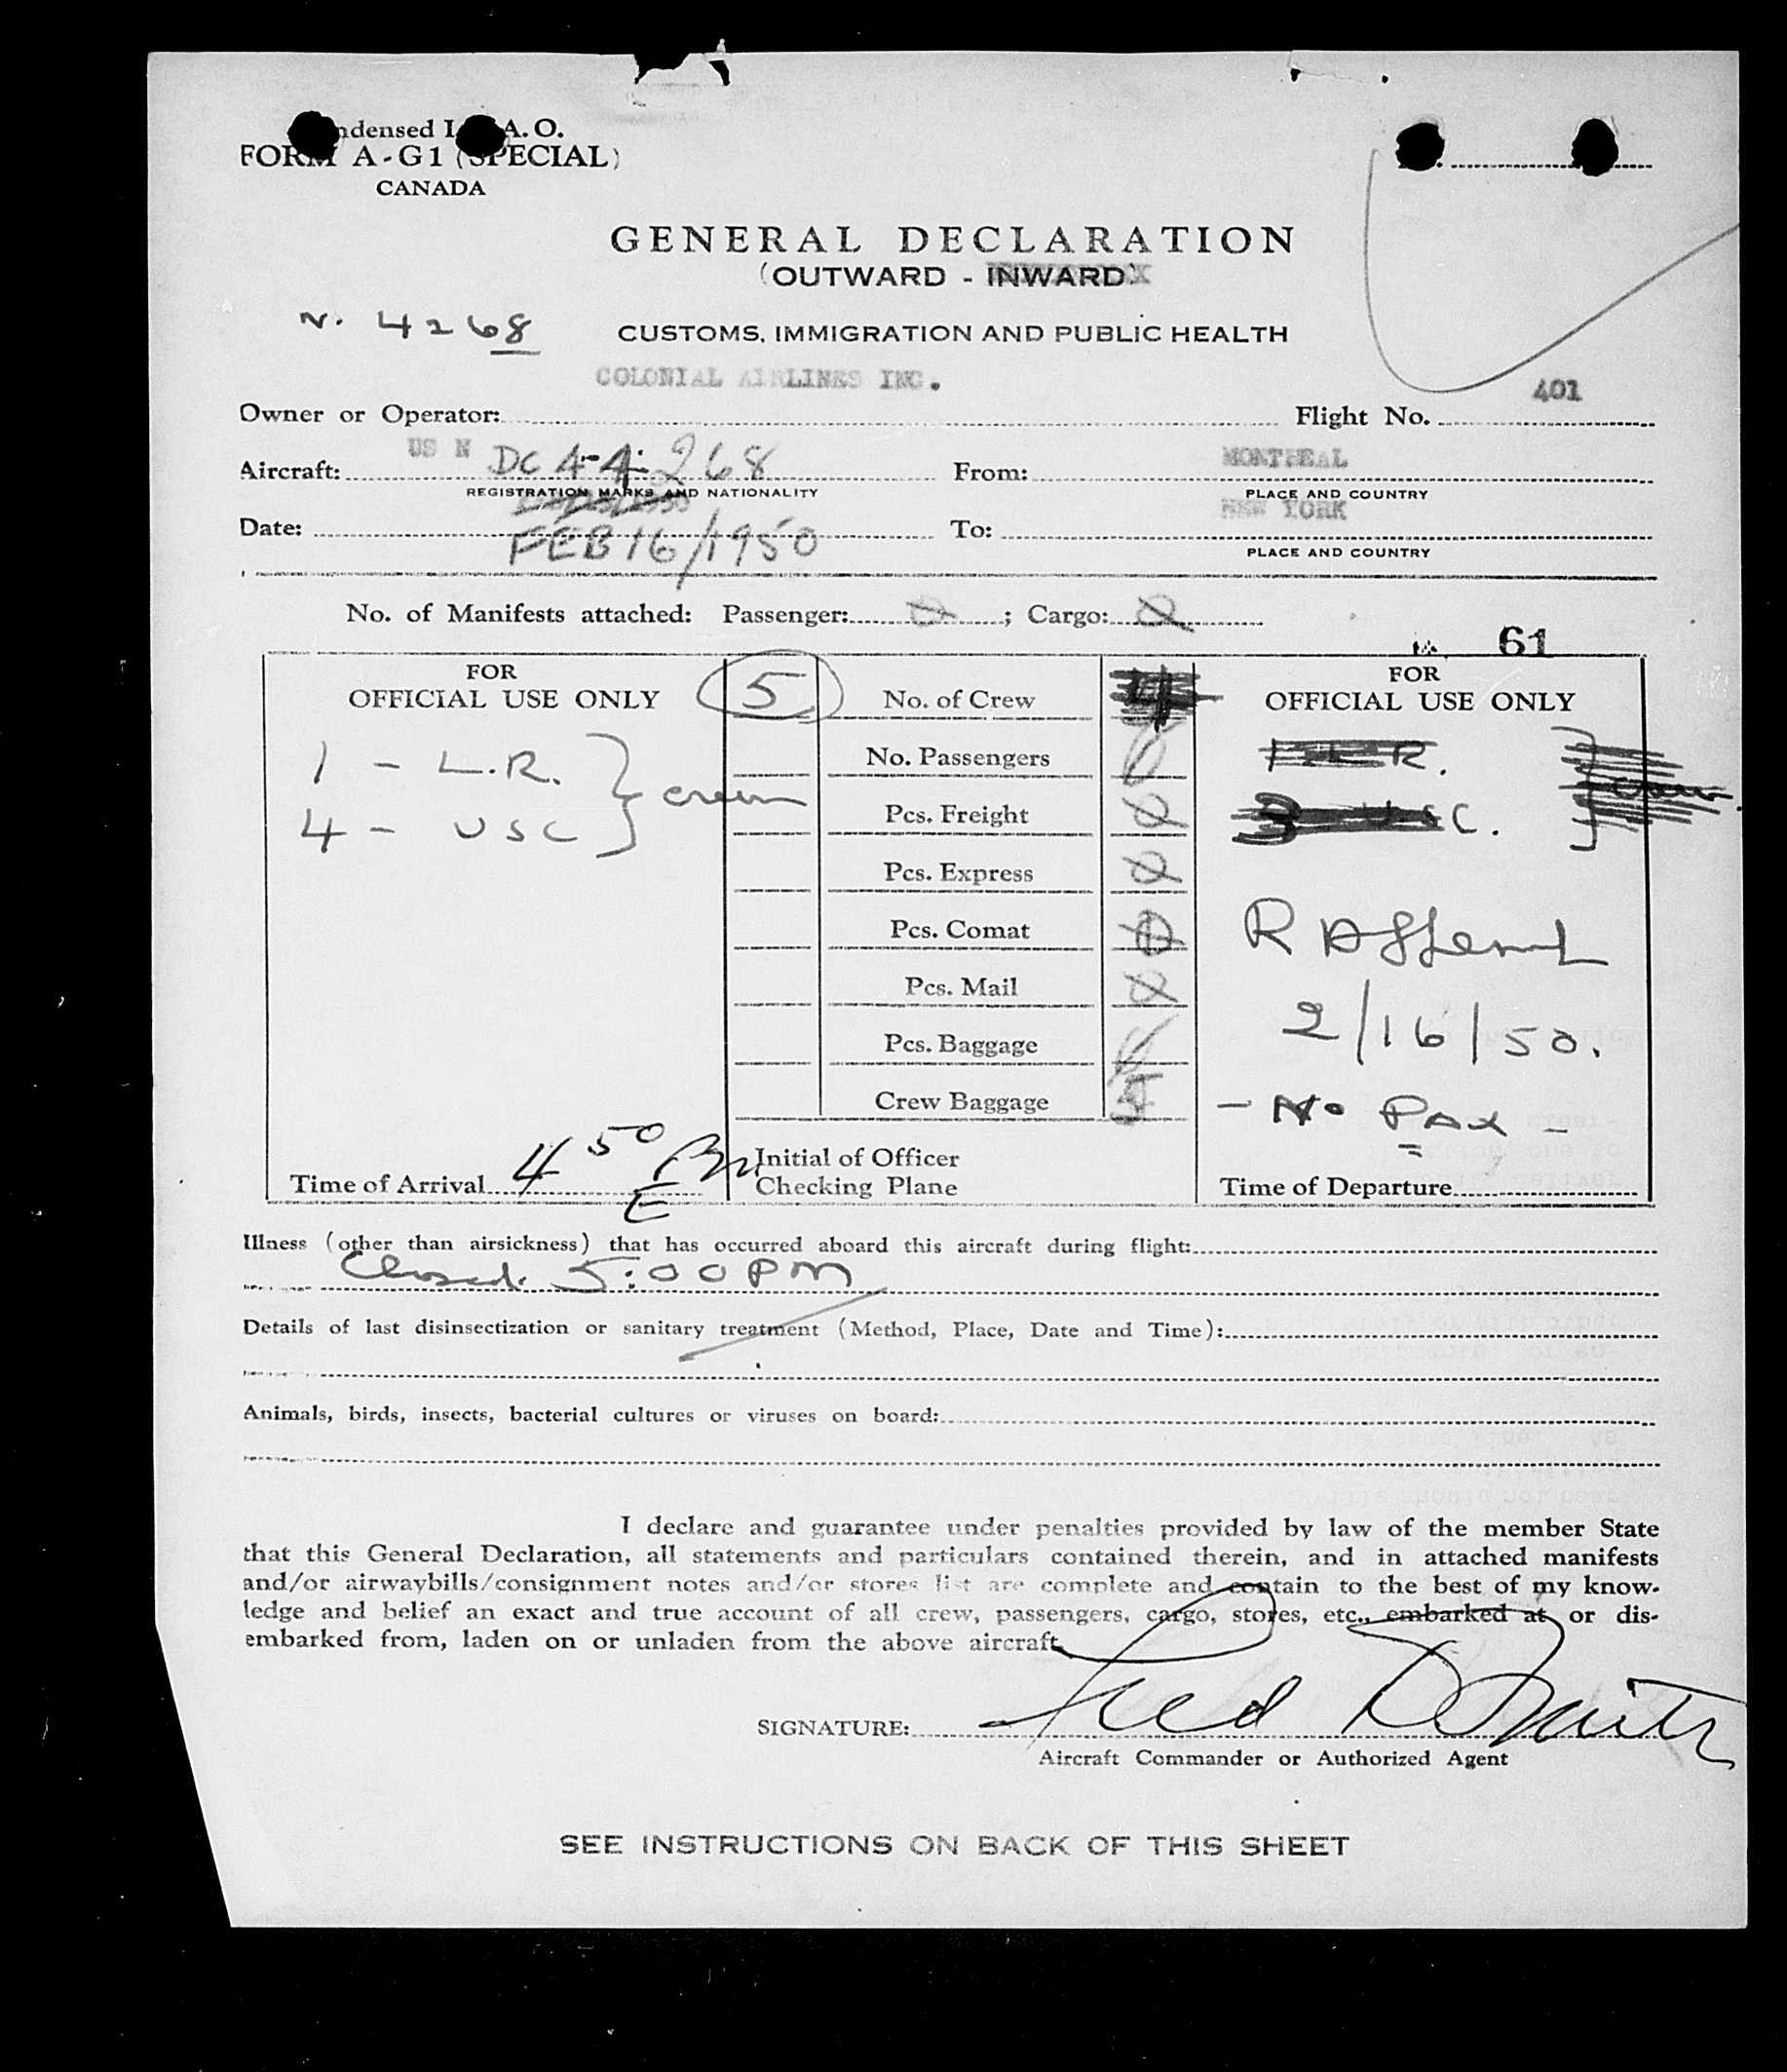 ndensed I. A. O.
FORM A-G1 (SPECIAL)
CANADA
GENERAL DECLARATION
(OUTWARD - INWARD)
N. 4268
CUSTOMS, IMMIGRATION AND PUBLIC HEALTH
COLONIAL AIRLINES INC.
Owner or Operator: Flight No. 401
Aircraft: US N DC 4-4268 From: MONTREAL
REGISTRATION MARKS AND NATIONALITY PLACE AND COUNTRY
Date: FEB 16/1950 To: NEW YORK
PLACE AND COUNTRY
No. of Manifests attached: Passenger: 0 ; Cargo: 0
61
FOR
OFFICIAL USE ONLY
1 - L.R.
4 - USC } crew
Time of Arrival 4 50 PM
E
5 No. of Crew 4
No. Passengers 0
Pcs. Freight 0
Pcs. Express 0
Pcs. Comat 0
Pcs. Mail 0
Pcs. Baggage 0
Crew Baggage
Initial of Officer
Checking Plane
FOR
OFFICIAL USE ONLY
1 L.R.
3 USC. } Crew
R
2/16/50.
- No PAX -
Time of Departure
Illness (other than airsickness) that has occurred aboard this aircraft during flight:
Closed 5:00 PM
Details of last disinsectization or sanitary treatment (Method, Place, Date and Time):
Animals, birds, insects, bacterial cultures or viruses on board:
I declare and guarantee under penalties provided by law of the member State
that this General Declaration, all statements and particulars contained therein, and in attached manifests
and/or airwaybills/consignment notes and/or stores list are complete and contain to the best of my know-
ledge and belief an exact and true account of all crew, passengers, cargo, stores, etc., embarked at or dis-
embarked from, laden on or unladen from the above aircraft.
SIGNATURE: Fred D Smith
Aircraft Commander or Authorized Agent
SEE INSTRUCTIONS ON BACK OF THIS SHEET